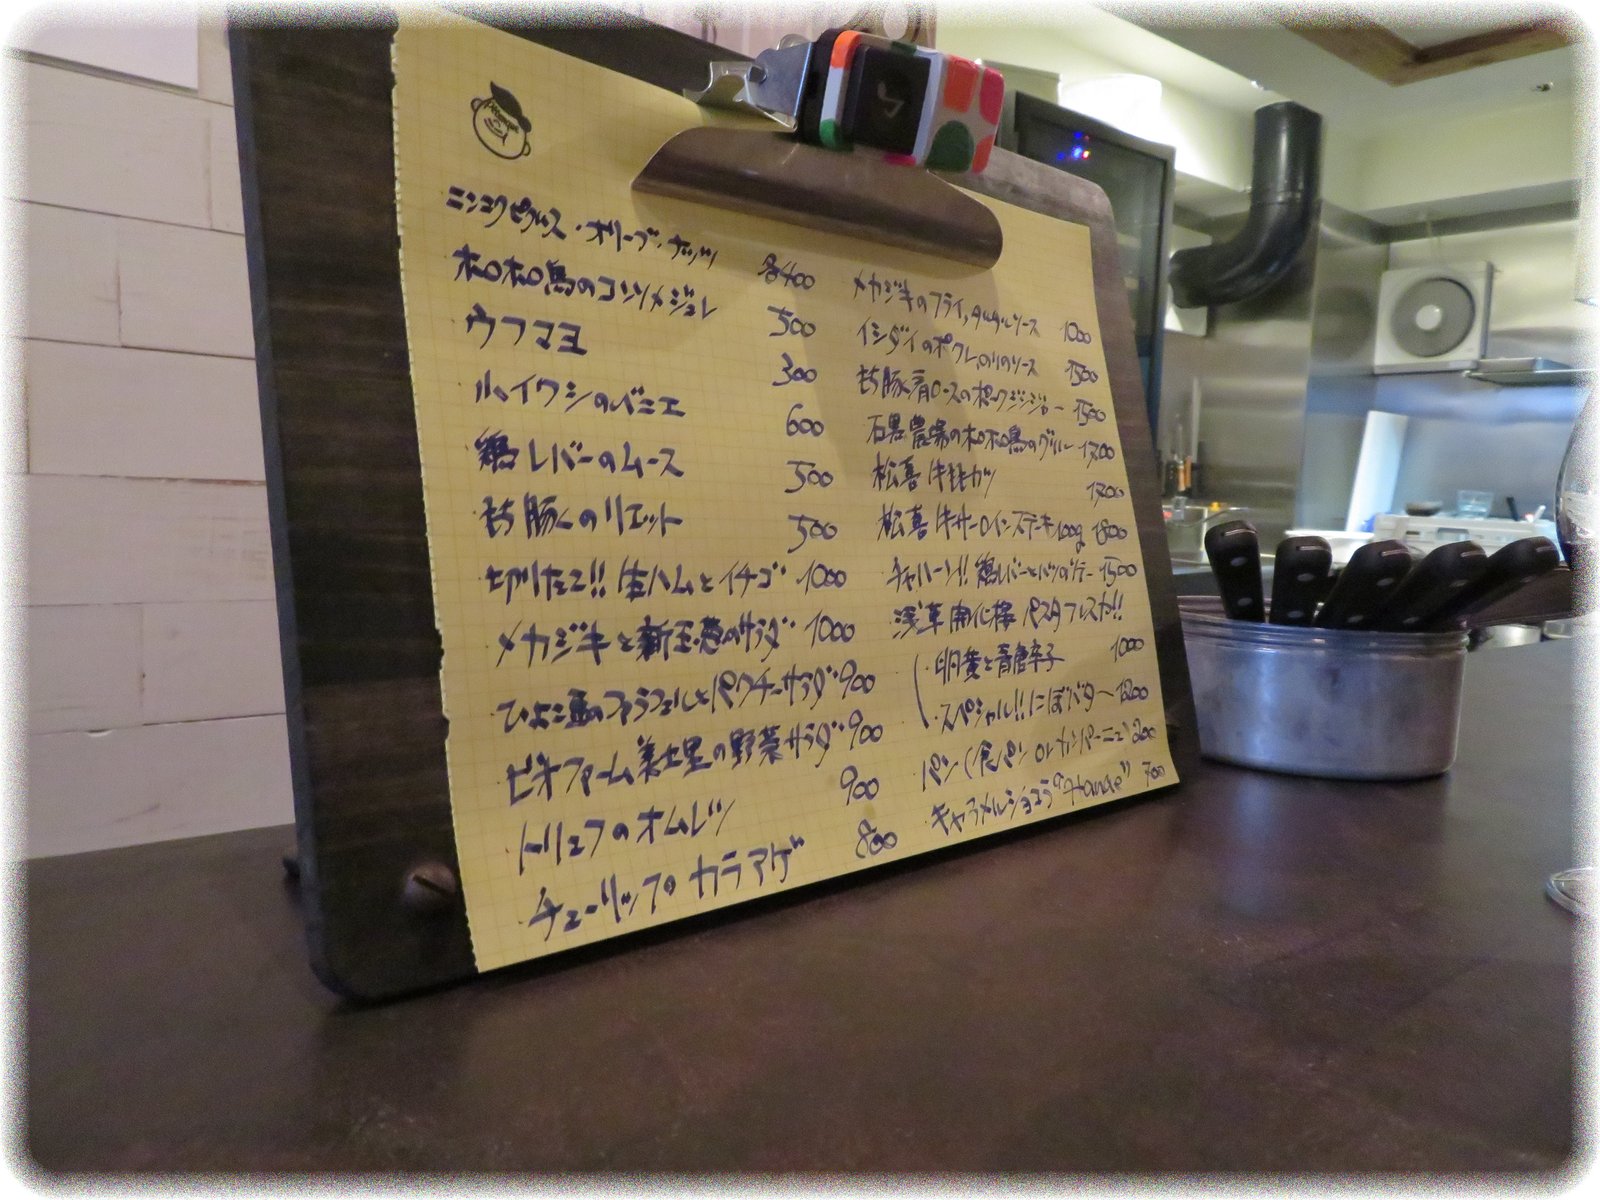 Pétanque
ニンニクピクルス・オリーブ・ナッツ 各400
ホロホロ鳥のコンソメジュレ 500
ウフマヨ 300
小イワシのベニエ 600
鶏レバーのムース 500
もち豚くのリエット 500
切りたて!! 生ハムとイチゴ 1000
メカジキと新玉葱のサラダ 1000
ひよこ豆のファラフェルとパクチーサラダ 900
ビオファーム美土里の野菜サラダ 900
トリュフのオムレツ 900
チューリップのカラアゲ 800
メカジキのフライ,タルタルソース 1000
イシダイのポワレ,のりのソース 1500
もち豚く肩ロースのポークジンジャー 1500
石黒農場のホロホロ鳥のグリル 1700
松喜 牛ヒレカツ
松喜 牛サーロインステーキ100g 1800
チャハーン!! 鶏レバーと 1500
浅草開化楼 パスタフレスカ!!
・卵黄と青唐辛子 1000
・スペシャル!! にぼバター 1200
パン(食パン or カンパーニュ) 200
キャラメルショコラ 700